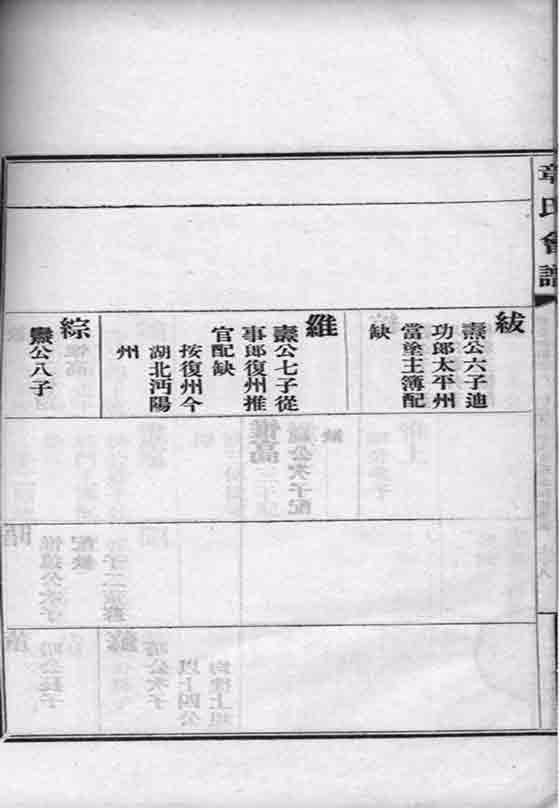 章氏會譜
紱
燾公六子迪
功郎太平州
當塗主簿配
缺
維
燾公七子從
事郎復州推
官配缺
按復州今
湖北沔陽
州
綜
燾公八子